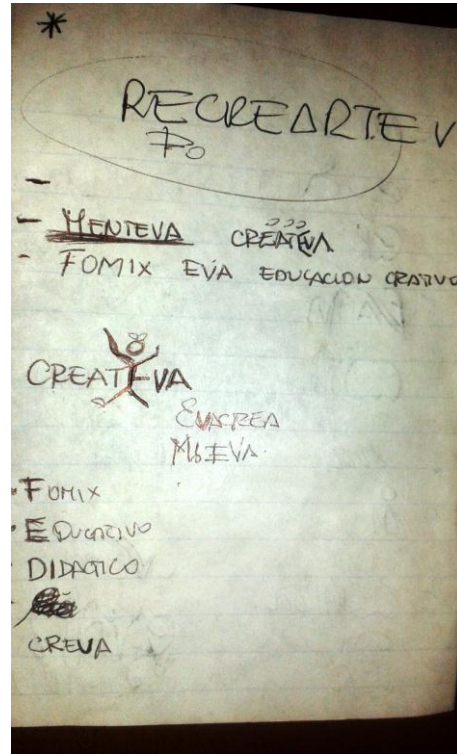 *
RECREARTE V
Fo
-
- MENTEVA CREATEVA
- FOMIX EVA EDUCACION CRATIVO
CREATEVA
EVACREA
- FOMIX
- EDUCATIVO
DIDACTICO
CREVA